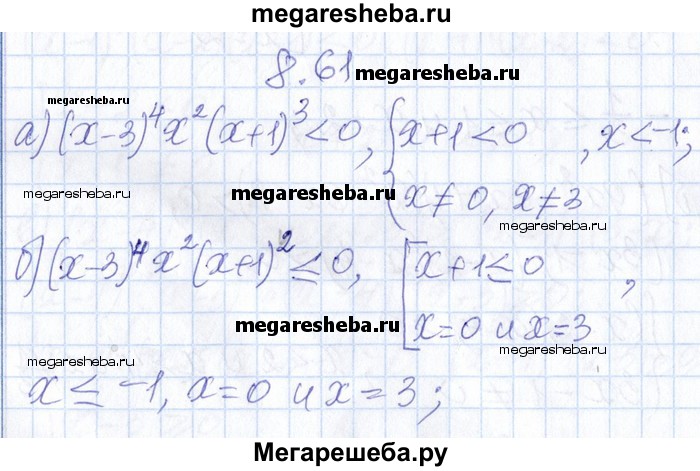 megaresheba.ru
8.61 megaresheba.ru
megaresheba.ru megaresheba.ru
а) (x-3)⁴x²(x+1)³<0, {x+1<0, x<-1;
x≠0, x≠3
megaresheba.ru megaresheba.ru megaresheba.ru
б) (x-3)⁴x²(x+1)²≤0, [x+1≤0,
x=0 и x=3
megaresheba.ru
megaresheba.ru megaresheba.ru
x≤-1, x=0 и x=3;
Мегарешеба.ру